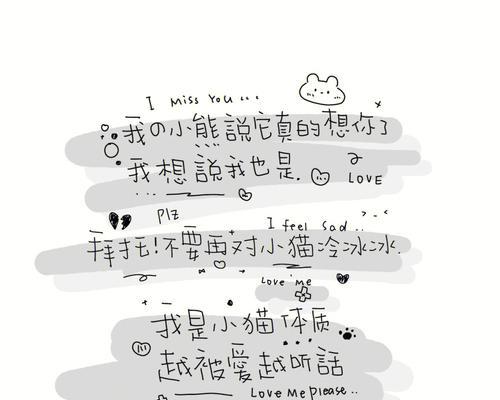 I MISS YOU...
我の小熊說它真的想你了
我想說我也是.
LOVE
Plz
I feel sad..
拜托!不要再对小猫冷冰冰.
Love me
我是小猫体质
越被愛越听話
Love Me please..